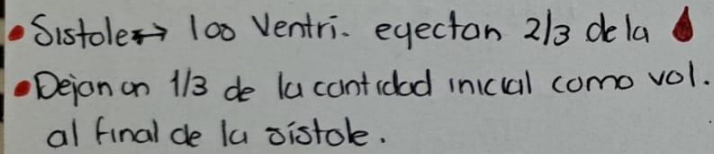 • Sistole↔ los Ventri. eyectan 2/3 de la 🩸
• Dejan un 1/3 de la cantidad inicial como vol.
al final de la sístole.